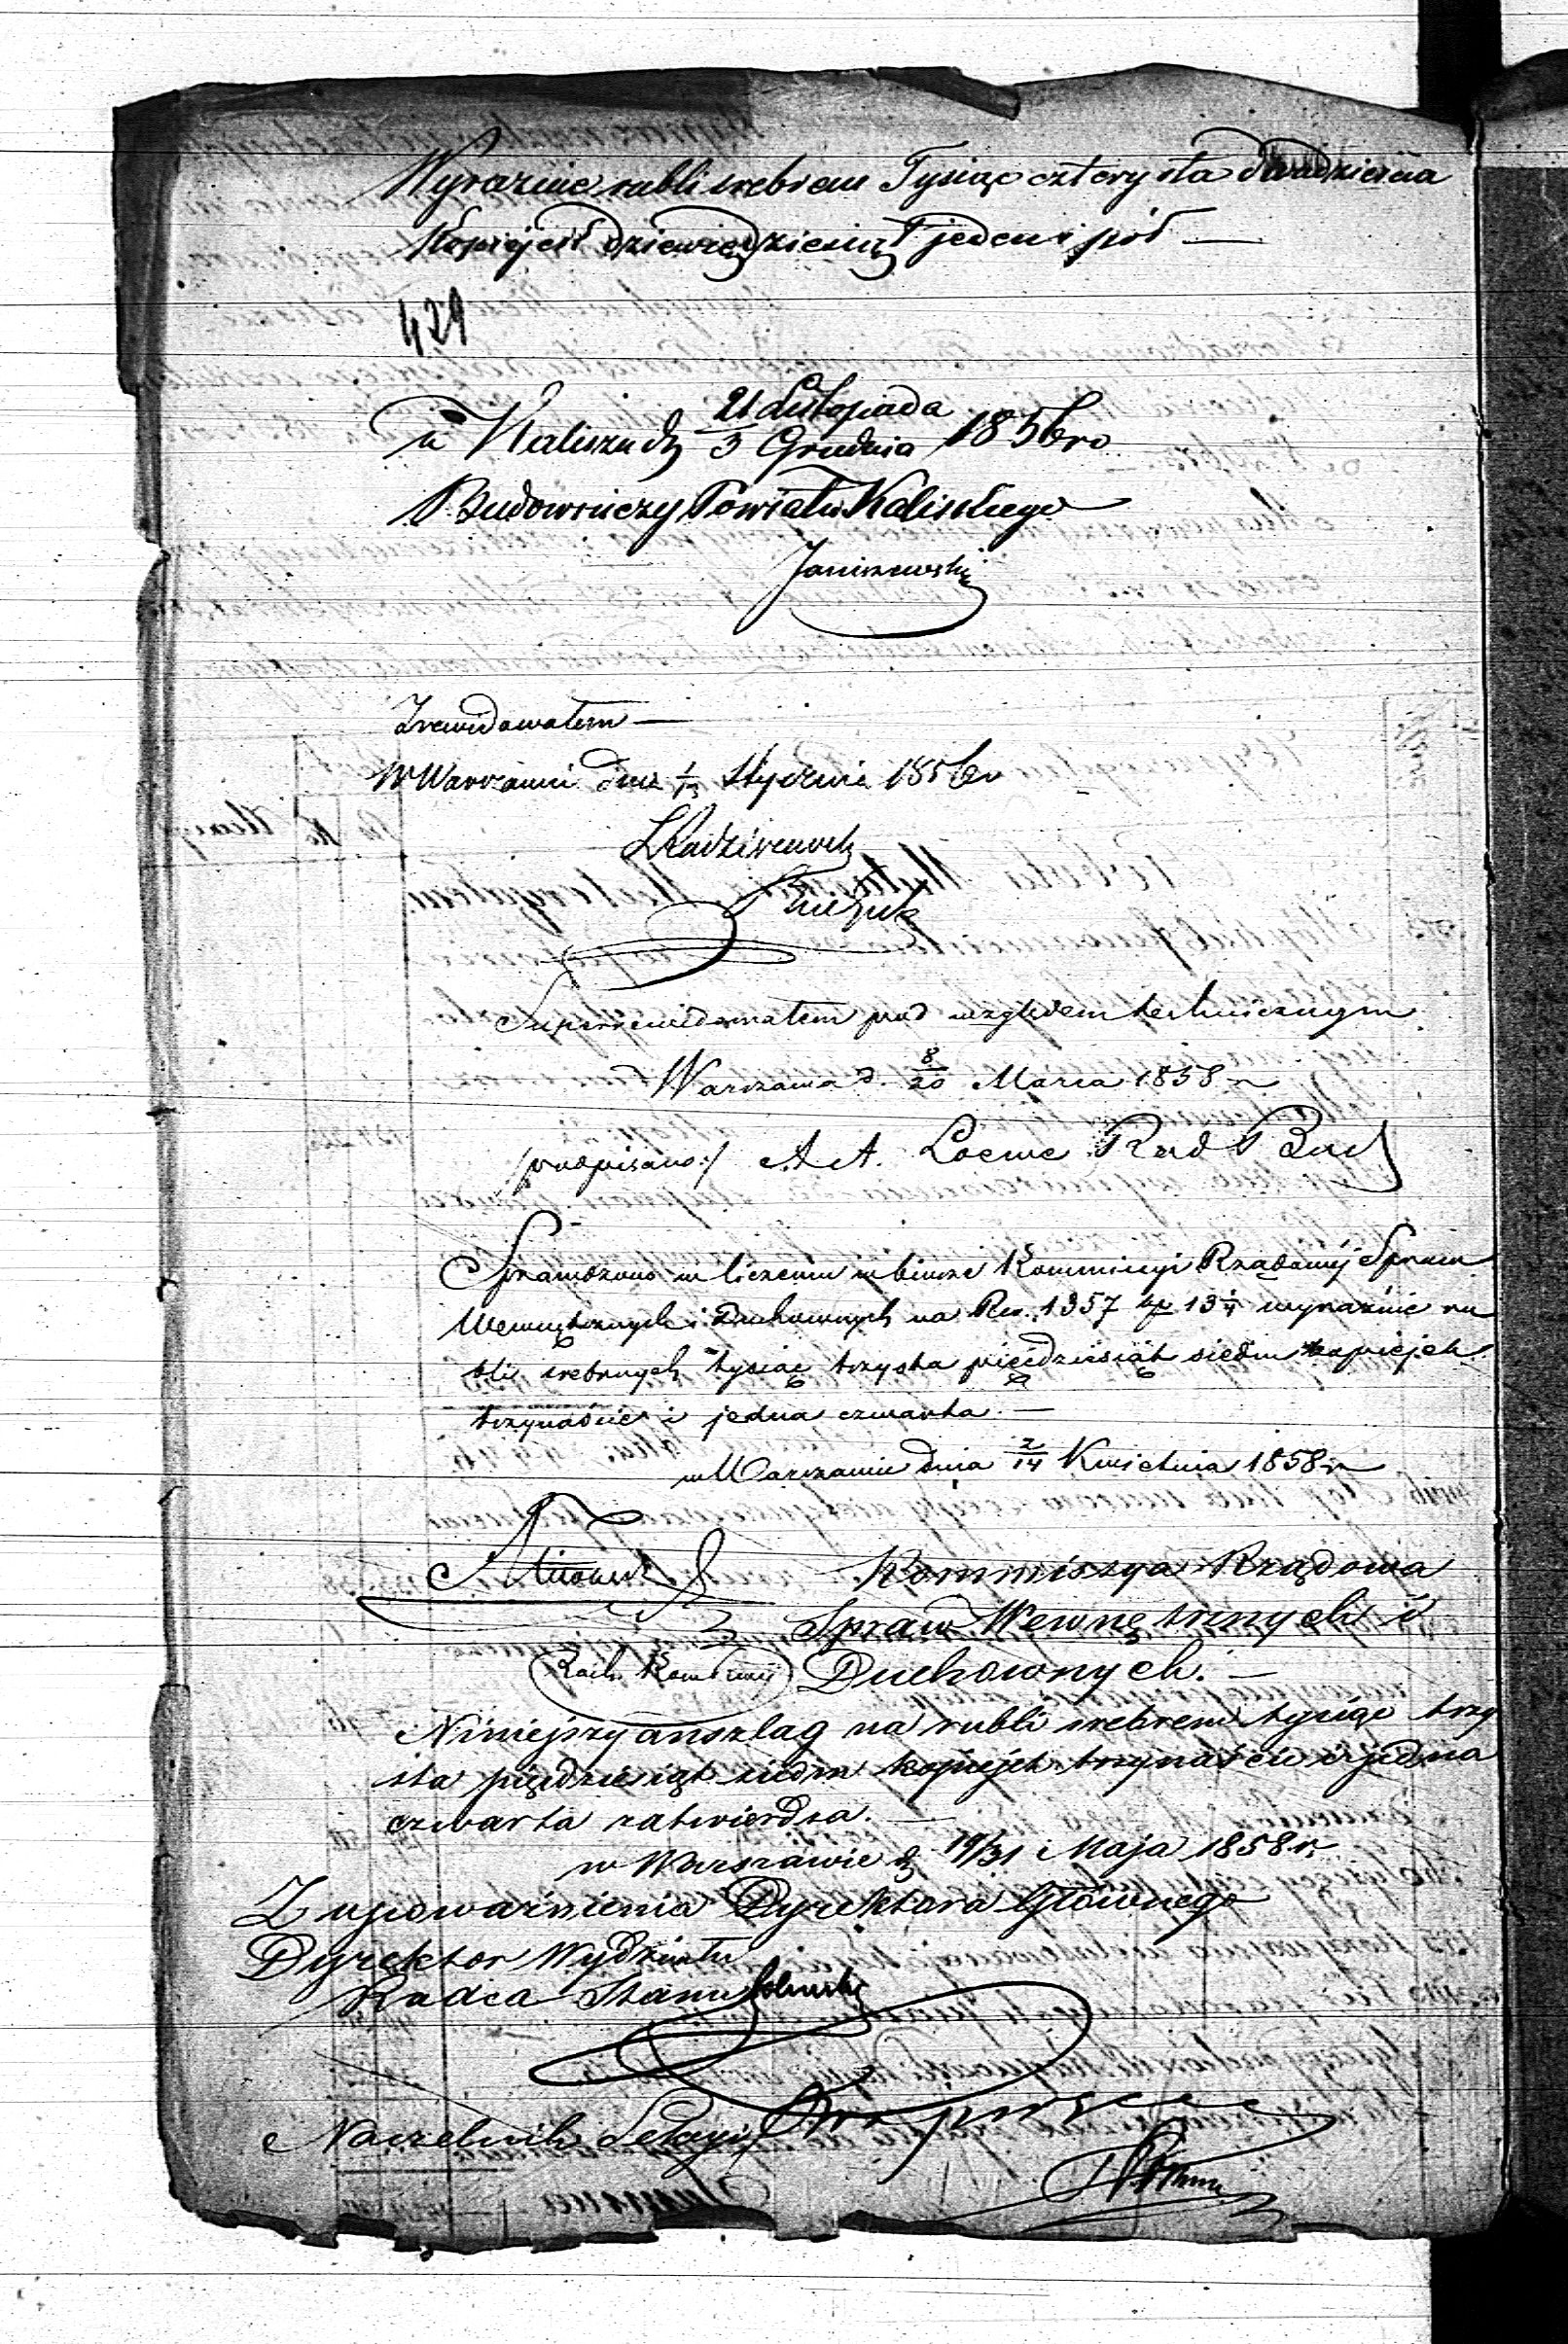 Wyraźnie rubli srebrem Tysiąc czterysta dwadzieścia
Kopiejek dziewięćdziesiąt jeden i pół —
429
w Kaliszu d. 21 Listopada / 3 Grudnia 1856 ro
Budowniczy Powiatu Kaliskiego
Janiszewski
Zrewidowałem —
W Warszawie dnia 1/13 Stycznia
Superrewidowałem pod względem technicznym
Warszawa d. 8/20 Marca 1858 r
/podpisano:/ A. A. Loewe Rad Bud
Sprawdzono w liczeniu w biurze Kommissyi Rządowéj Spraw
Wewnętrznych i Duchownych na Rsr. 1357 kp 13 1/4 wyraźnie ru
bli srebrnych tysiąc trzysta pięćdziesiąt siedm kopiejek
trzynaście i jedna czwarta. —
w Warszawie dnia 2/14 Kwietnia 1858 r
Kommissya Rządowa
Spraw Wewnętrznych i
Duchownych. —
Niniejszy anszlag na rubli srebrem tysiąc trzy
sta pięćdziesiąt siedm kopiejek trzynaście i jedna
czwarta zatwierdza. —
w Warszawie d. 19/31 Maja 1858 r.
Z upoważnienia Dyrektora Głównego
Dyrektor Wydziału
Radca Stanu
Naczelnik Sekcyi